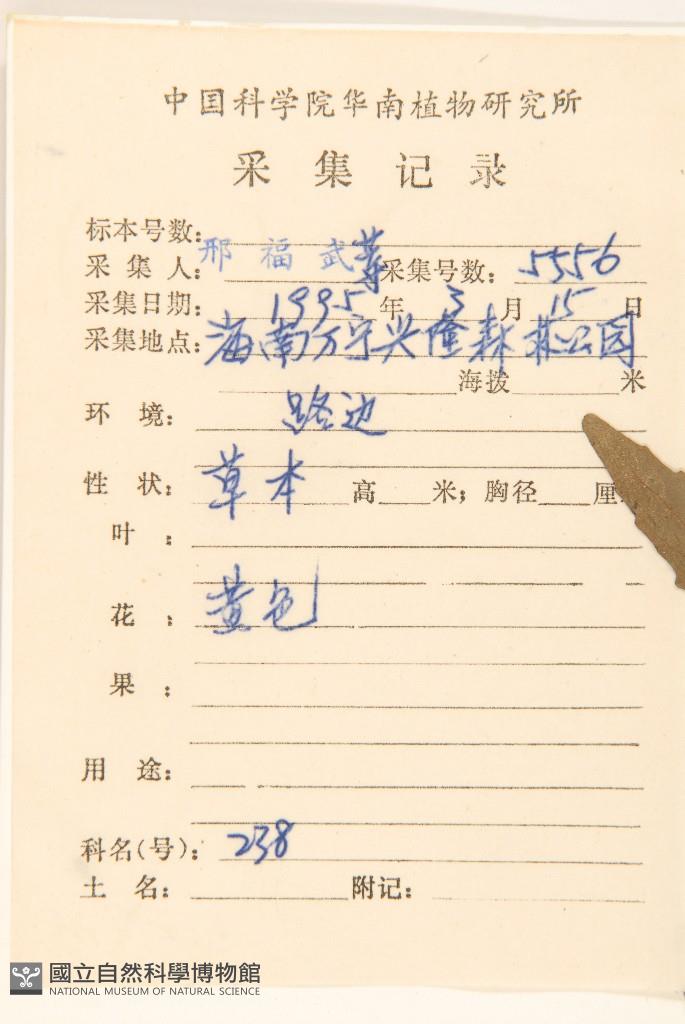 中国科学院华南植物研究所
采集记录
标本号数：
采集人：邢福武等 采集号数：5556
采集日期：1995年3月15日
采集地点：海南万宁兴隆森林公园
海拔 米
环境：路边
性状：草本 高 米；胸径 厘
叶：
花：黄色
果：
用途：
科名(号)：238
土名： 附记：
國立自然科學博物館
NATIONAL MUSEUM OF NATURAL SCIENCE